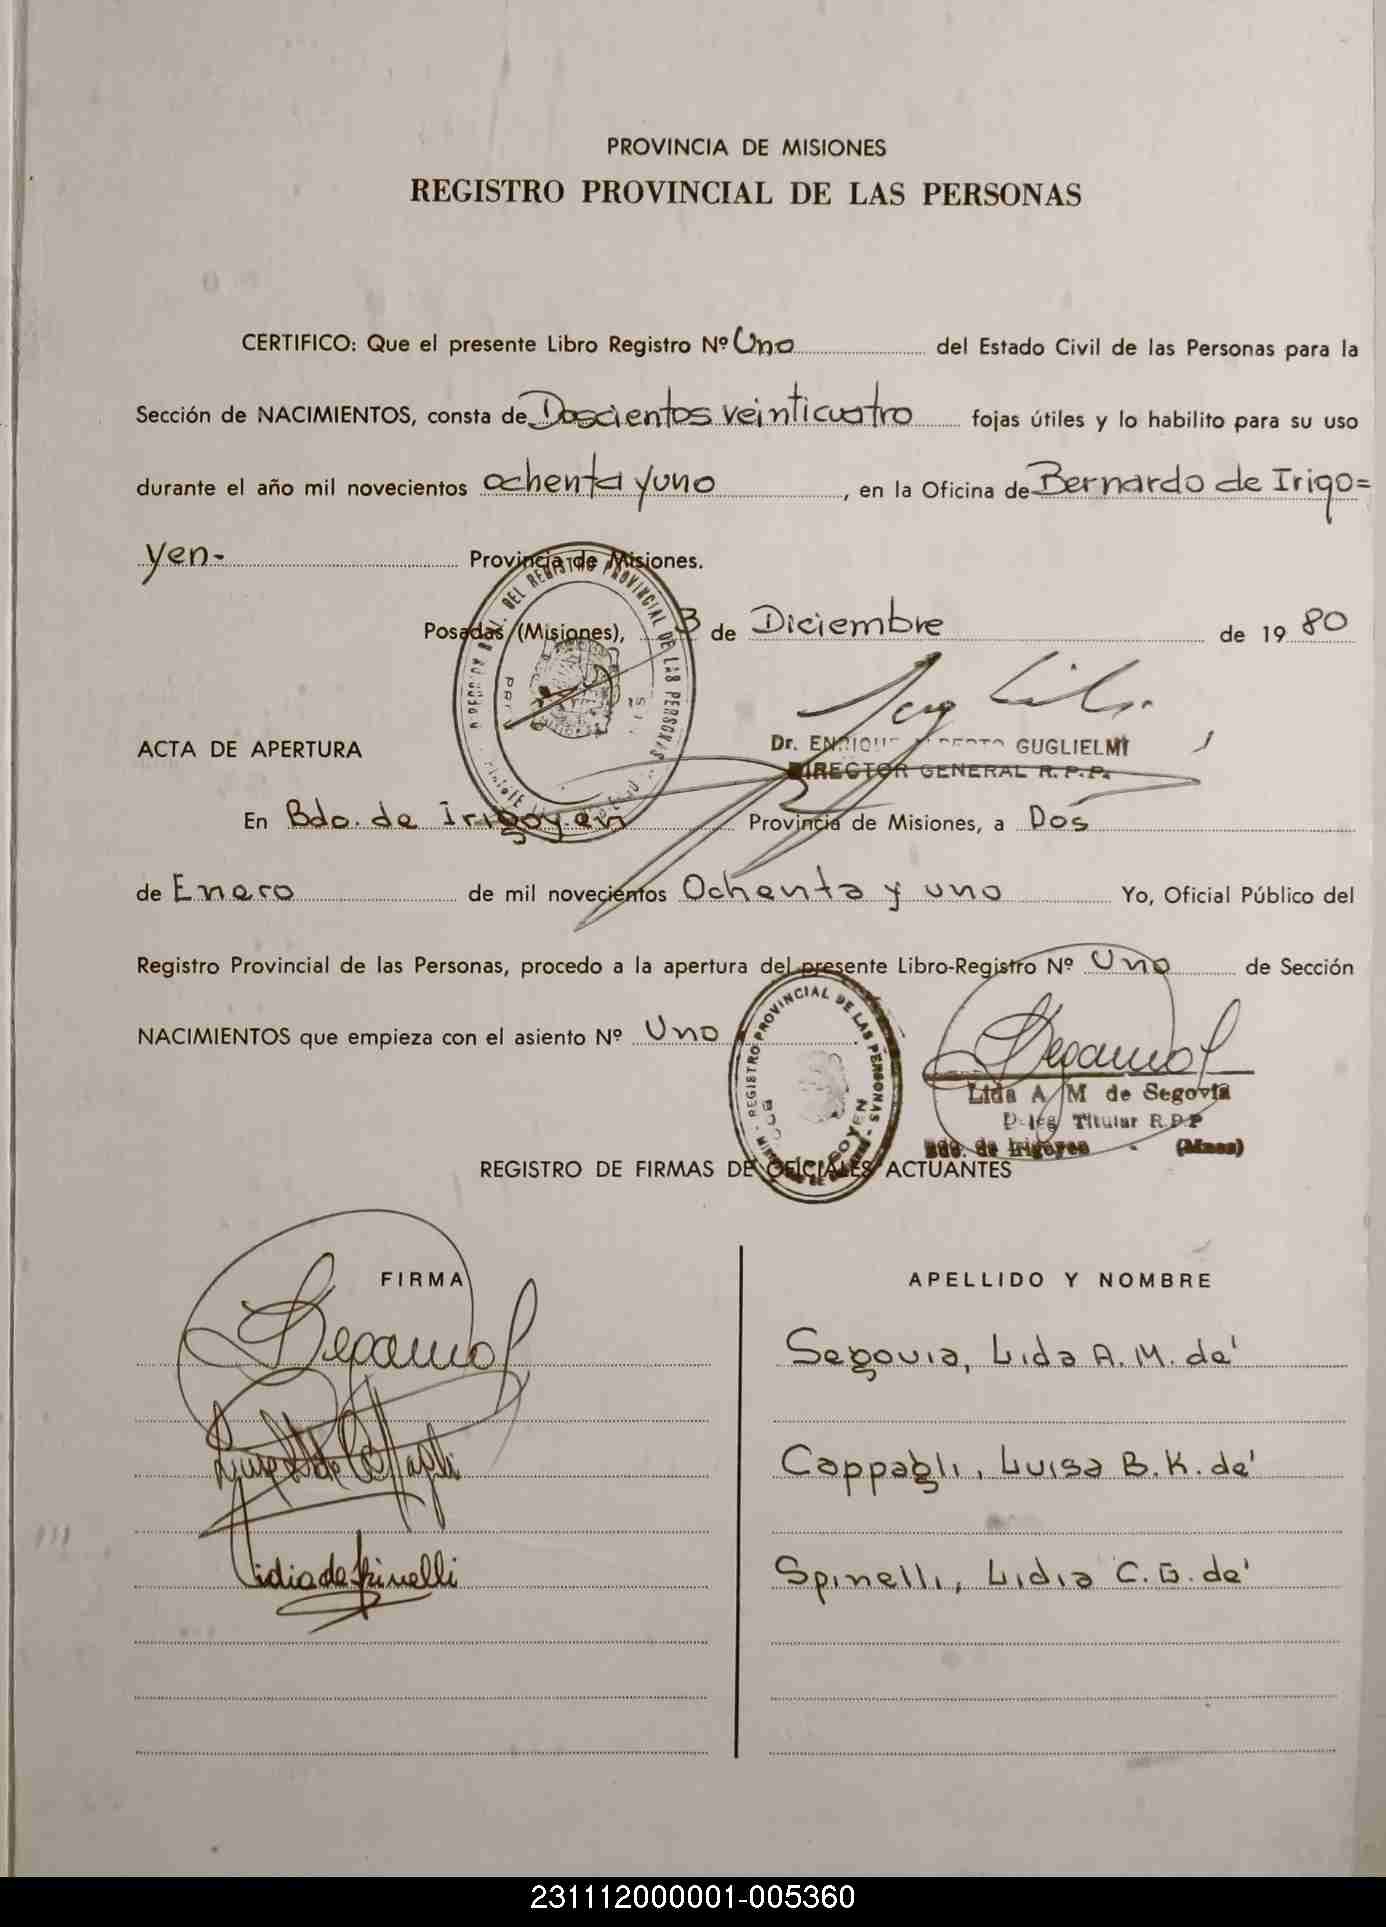 PROVINCIA DE MISIONES
REGISTRO PROVINCIAL DE LAS PERSONAS
CERTIFICO: Que el presente Libro Registro Nº Uno del Estado Civil de las Personas para la
Sección de NACIMIENTOS, consta de Doscientos veinticuatro fojas útiles y lo habilito para su uso
durante el año mil novecientos ochenta y uno, en la Oficina de Bernardo de Irigo=
yen- Provincia de Misiones.
Posadas (Misiones), 3 de Diciembre de 1980
Dr. ENRIQUE ALBERTO GUGLIELMI
DIRECTOR GENERAL R.P.P.
ACTA DE APERTURA
En Bdo. de Irigoyen Provincia de Misiones, a Dos
de Enero de mil novecientos Ochenta y uno Yo, Oficial Público del
Registro Provincial de las Personas, procedo a la apertura del presente Libro-Registro Nº Uno de Sección
NACIMIENTOS que empieza con el asiento Nº Uno
REGISTRO PROVINCIAL DE LAS PERSONAS
Lida A M de Segovia
Deleg Titular R.P.P
Bdo. de Irigoyen (Mnes)
REGISTRO DE FIRMAS DE OFICIALES ACTUANTES
FIRMA APELLIDO Y NOMBRE
Segovia, Lida A. M. de'
Cappagli, Luisa B. K. de'
Lidia de Spinelli Spinelli, Lidia C. G. de'
231112000001-005360